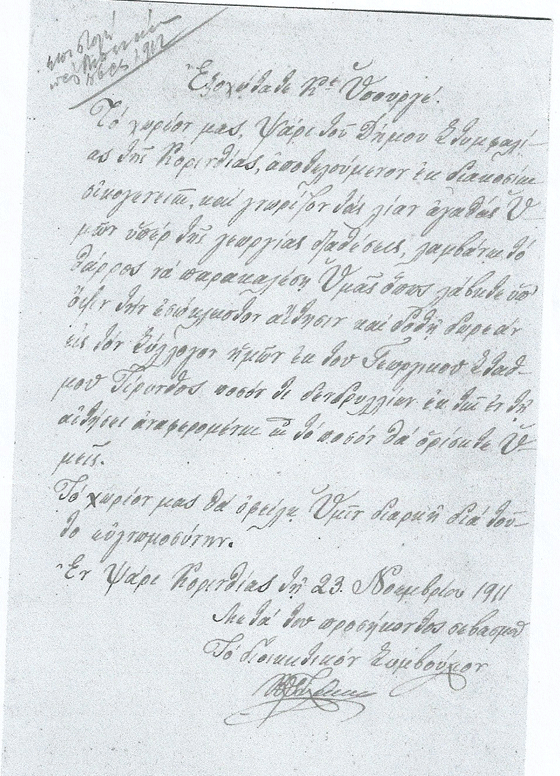 Ἐξοχώτατε Κε Ὑπουργέ.
Τό χωρίον μας, Ψάρι τοῦ Δήμου Στυμφαλί-
ας τῆς Κορινθίας, ἀποτελούμενον ἐκ διακοσίων
οἰκογενειῶν, καί γνωρίζον τάς λίαν ἀγαθάς Ὑ-
μῶν ὑπέρ τῆς γεωργίας διαθέσεις, λαμβάνει τό
θάρρος νά παρακαλέσῃ Ὑμᾶς ὅπως λάβητε ὑπ'
ὄψιν τήν ἐσώκλειστον αἴτησιν καί δοθῇ δωρεάν
εἰς τόν Σύλλογον ἡμῶν ἐκ τοῦ Γεωργικοῦ Σταθ-
μοῦ Τίρυνθος ποσόν τι δενδρυλλίων ἐκ τῶν ἐν τῇ
αἰτήσει ἀναφερομένων ὧν τό ποσόν θά ὁρίσητε Ὑ-
μεῖς.
Τό χωρίον μας θά ὀφείλῃ Ὑμῖν διαρκῆ διά τοῦ-
το εὐγνωμοσύνην.
Ἐν Ψάρι Κορινθίας τῇ 23 Νοεμβρίου 1911
Μετά τοῦ προσήκοντος σεβασμοῦ
Τό Διοικητικόν Συμβούλιον